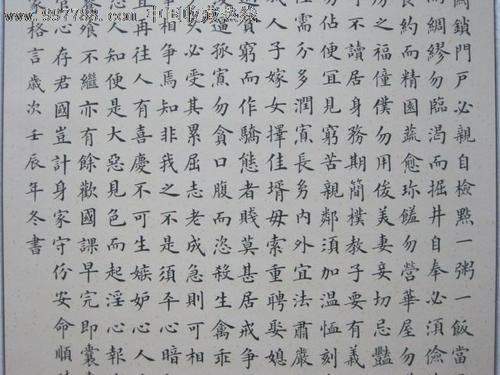 關鎖門戶必親自檢點一粥一飯當
而綢繆勿臨渴而掘井自奉必須儉
約而精園蔬愈珍饈勿營華屋勿
房之福僮僕勿用俊美妻妾切忌豔
不讀居身務期簡樸教子要有義
勿佔便宜見窮苦親鄰須加溫恤刻
需分多潤寡長幼內外宜法肅嚴
人子嫁女擇佳婿毋索重聘娶媳
貧窮而作驕態者賤莫甚居戒爭
逞孤寡勿貪口腹而恣殺生禽乖
久必受其累屈志老成急則可相
相爭焉知非我之不是須平心暗
宜再往人有喜慶不可生嫉妒心人
恐人知便是大惡見色而起淫心報
飧不繼亦有餘歡國課早完即囊
心存君國豈計身家守份安命順
家格言歲次壬辰年冬書